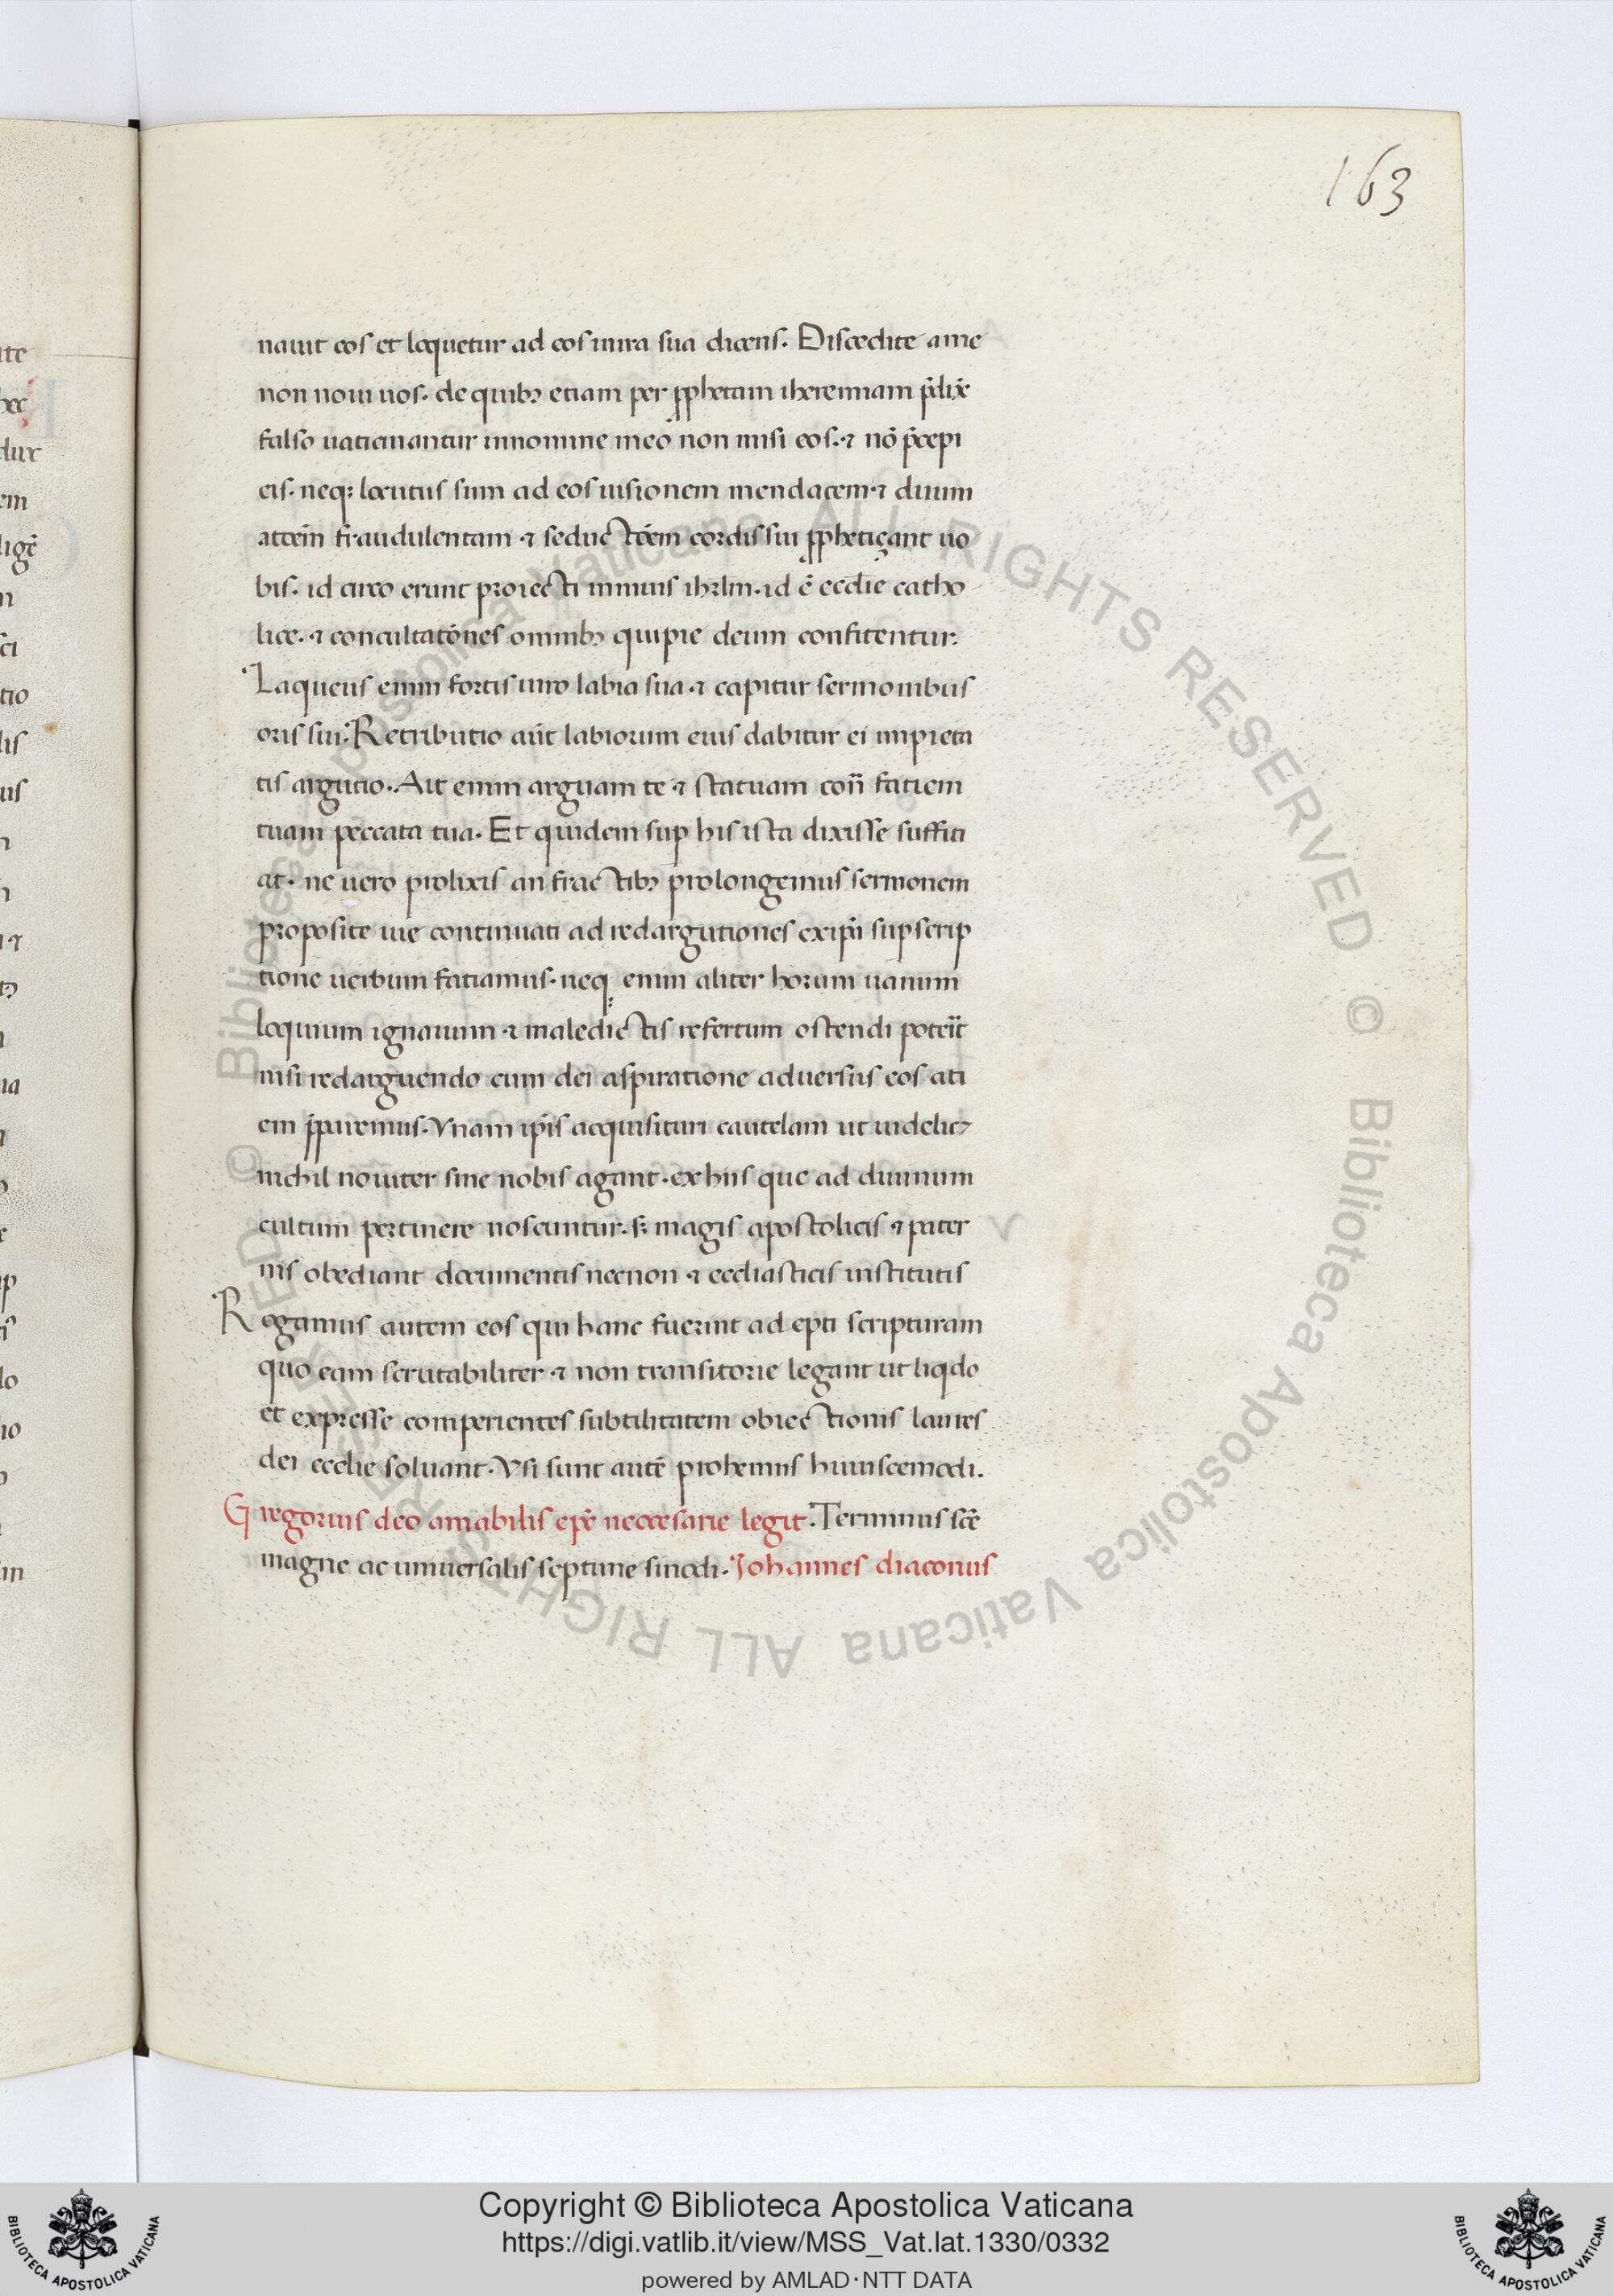 163
nauit eos et loquetur ad eos in ira sua dicens. Discedite a me
non noui uos. de quibꝫ etiam per ꝓphetam iheremiam p̄dix̄
falso uaticinantur in nomine meo non misi eos. ⁊ nō p̄cepi
eis. neqꝫ locutus sum ad eos uisionem mendacem. ⁊ diuin
atōem fraudulentam. ⁊ seductōem cordis sui ꝓphetiçant uo
bis. id circo erunt proiecti in uiis ihrlm. id ē eccl̄ie catho
lice. ⁊ concultatōnes omnibꝫ qui pie deum confitentur.
Laqueus enim fortis uiro labia sua. ⁊ capitur sermonibus
oris sui. Retributio aūt labiorum eius dabitur ei impieta
tis argutio. Ait enim arguam te ⁊ statuam cont̄ fatiem
tuam peccata tua. Et quidem sup his ista dixisse suffiti
at. ne uero prolixis anfractibꝫ prolongemus sermonem
proposite uie continuati ad redargutiones ex ip̄i supscrip
tione uerbum fatiamus. neqꝫ enim aliter horum uanum
loquium ignauum ⁊ maledictis refertum ostendi poterit
nisi redarguendo cum dei aspiratione aduersus eos ati
em p̄paremus. Vnam ip̄is acquisituri cautelam ut uidelicꝫ
nichil nouiter sine nobis agant. ex hiis que ad diuinum
cultum pertinere noscuntur. sꝫ magis apostolicis ⁊ pater
nis obediant documentis necnon ⁊ eccl̄iasticis institutis
Rogamus autem eos qui hanc fuerint adepti scripturam
quo eam scrutabiliter ⁊ non transitorie legant ut liqdo
et expresse comperientes subtilitatem obiectionis laures
dei eccl̄ie soluant. Vsi sunt autē prohemiis huiuscemodi.
Gregorius deo amabilis ep̄c neccesarie legit. Terminus scē
magne ac uniuersalis septime sinodi. Johannes diaconus
Copyright © Biblioteca Apostolica Vaticana
https://digi.vatlib.it/view/MSS_Vat.lat.1330/0332
powered by AMLAD·NTT DATA